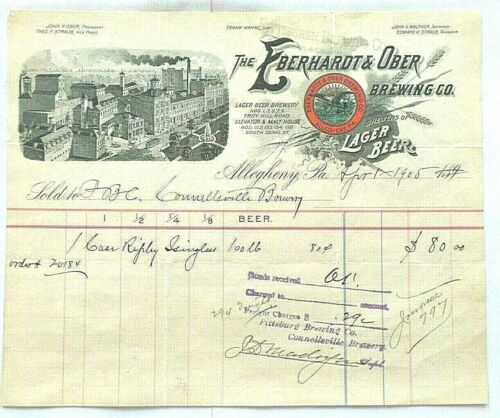 JOHN P. OBER, PRESIDENT
THEO. F. STRAUB, VICE PREST.
FRANK HAHNE, SUPT.
JOHN G. WALTHER, SECRETARY
EDWARD H. STRAUB, TREASURER
THE EBERHARDT & OBER
BREWING CO.
LAGER BEER BREWERY
TROY HILL ROAD.
ELEVATOR & MALT HOUSE
NOS. 152, 153, 154, 156
SOUTH CANAL ST.
BREWERS OF
LAGER
BEER
Allegheny, Pa. Apr 1 1905
Sold to P B Co. Connellsville Brewery
1 1/2 1/4 1/8 BEER.
1 Case Ripley Isinglass 100 lb 80¢ $80.00
order # 20184
Goods received OK.
Charged to account.
294 Freight Charges $ .29c
Pittsburg Brewing Co.
Connellsville Brewery.
Supt.
797